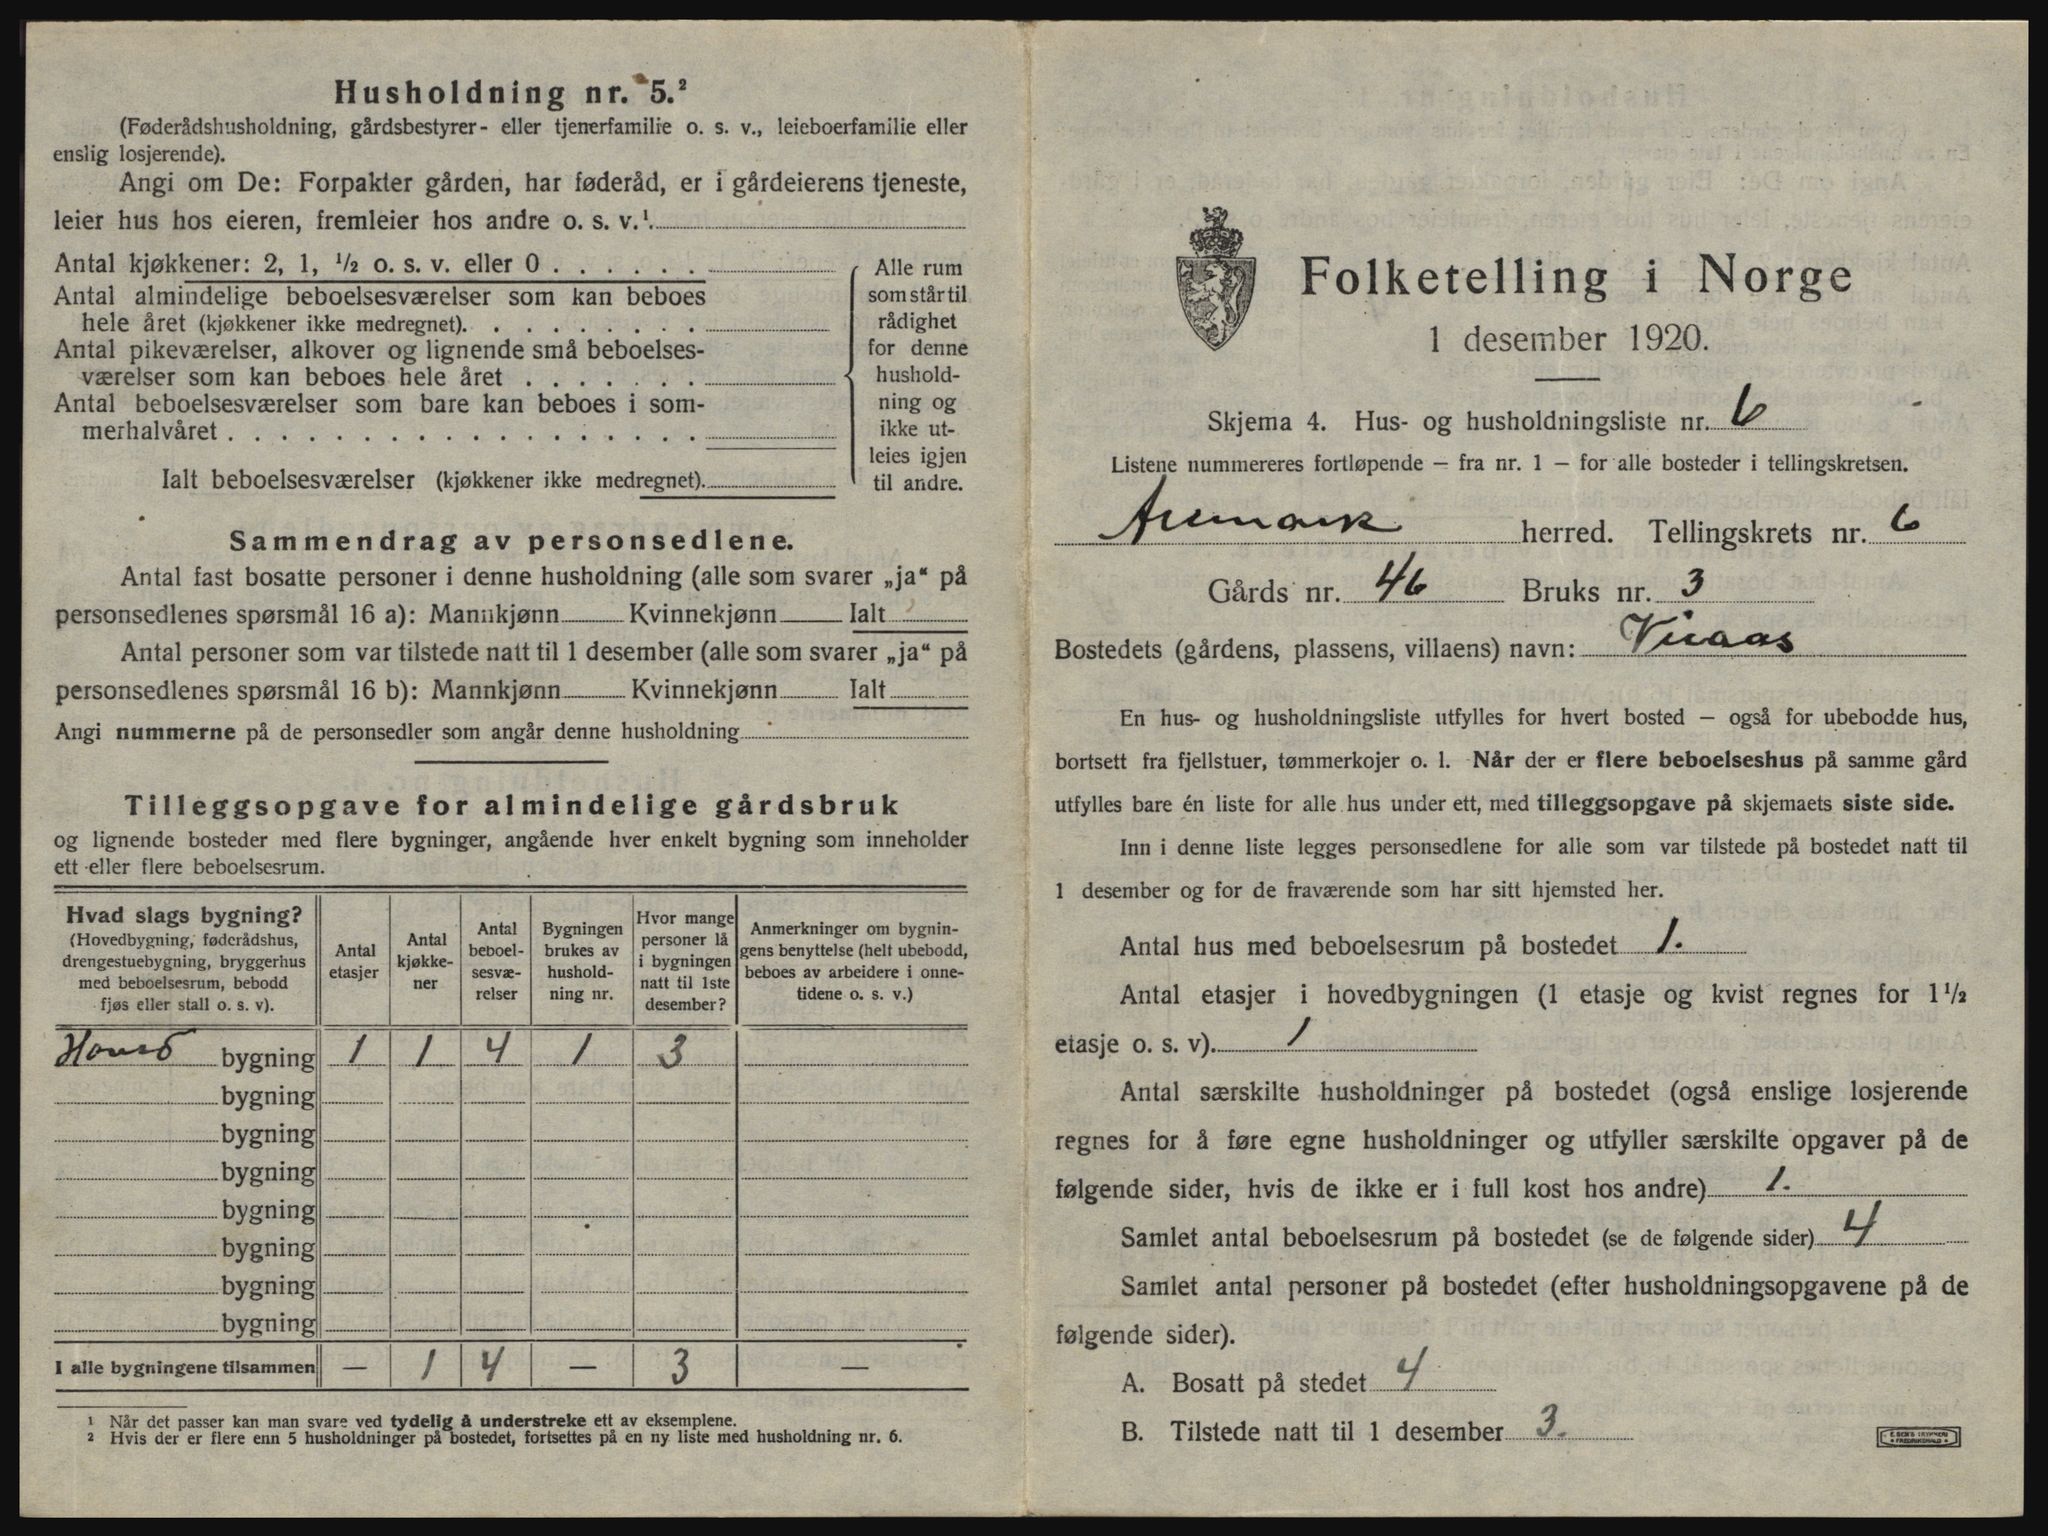 Husholdning nr. 5.²
(Føderådshusholdning, gårdsbestyrer- eller tjenerfamilie o. s. v., leieboerfamilie eller
enslig losjerende).
Angi om De: Forpakter gården, har føderåd, er i gårdeierens tjeneste,
leier hus hos eieren, fremleier hos andre o. s. v.¹
Antal kjøkkener: 2, 1, ½ o. s. v. eller 0
Antal almindelige beboelsesværelser som kan beboes
hele året (kjøkkener ikke medregnet).
Antal pikeværelser, alkover og lignende små beboelses-
værelser som kan beboes hele året
Antal beboelsesværelser som bare kan beboes i som-
merhalvåret
Ialt beboelsesværelser (kjøkkener ikke medregnet).
Alle rum
som står til
rådighet
for denne
hushold-
ning og
ikke ut-
leies igjen
til andre.
Sammendrag av personsedlene.
Antal fast bosatte personer i denne husholdning (alle som svarer „ja“ på
personsedlenes spørsmål 16 a): Mannkjønn Kvinnekjønn Ialt
Antal personer som var tilstede natt til 1 desember (alle som svarer „ja“ på
personsedlenes spørsmål 16 b): Mannkjønn Kvinnekjønn Ialt
Angi nummerne på de personsedler som angår denne husholdning
Tilleggsopgave for almindelige gårdsbruk
og lignende bosteder med flere bygninger, angående hver enkelt bygning som inneholder
ett eller flere beboelsesrum.
Hvad slags bygning?
(Hovedbygning, føderådshus,
drengestuebygning, bryggerhus
med beboelsesrum, bebodd
fjøs eller stall o. s. v).
Antal
etasjer
Antal
kjøkke-
ner
Antal
beboel-
sesvæ-
relser
Bygningen
brukes av
hushold-
ning nr.
Hvor mange
personer lå
i bygningen
natt til 1ste
desember?
Anmerkninger om bygnin-
gens benyttelse (helt ubebodd,
beboes av arbeidere i onne-
tidene o. s. v.)
bygning 1 1 4 1 3
bygning
bygning
bygning
bygning
bygning
bygning
bygning
I alle bygningene tilsammen — 1 4 — 3 —
¹ Når det passer kan man svare ved tydelig å understreke ett av eksemplene.
² Hvis der er flere enn 5 husholdninger på bostedet, fortsettes på en ny liste med husholdning nr. 6.
Folketelling i Norge
1 desember 1920.
Skjema 4. Hus- og husholdningsliste nr. 6
Listene nummereres fortløpende – fra nr. 1 – for alle bosteder i tellingskretsen.
Aremark herred. Tellingskrets nr. 6
Gårds nr. 46 Bruks nr. 3
Bostedets (gårdens, plassens, villaens) navn:
En hus- og husholdningsliste utfylles for hvert bosted – også for ubebodde hus,
bortsett fra fjellstuer, tømmerkojer o. l. Når der er flere beboelseshus på samme gård
utfylles bare én liste for alle hus under ett, med tilleggsopgave på skjemaets siste side.
Inn i denne liste legges personsedlene for alle som var tilstede på bostedet natt til
1 desember og for de fraværende som har sitt hjemsted her.
Antal hus med beboelsesrum på bostedet 1.
Antal etasjer i hovedbygningen (1 etasje og kvist regnes for 1½
etasje o. s. v). 1
Antal særskilte husholdninger på bostedet (også enslige losjerende
regnes for å føre egne husholdninger og utfyller særskilte opgaver på de
følgende sider, hvis de ikke er i full kost hos andre) 1.
Samlet antal beboelsesrum på bostedet (se de følgende sider) 4
Samlet antal personer på bostedet (efter husholdningsopgavene på de
følgende sider).
A. Bosatt på stedet 4
B. Tilstede natt til 1 desember 3.